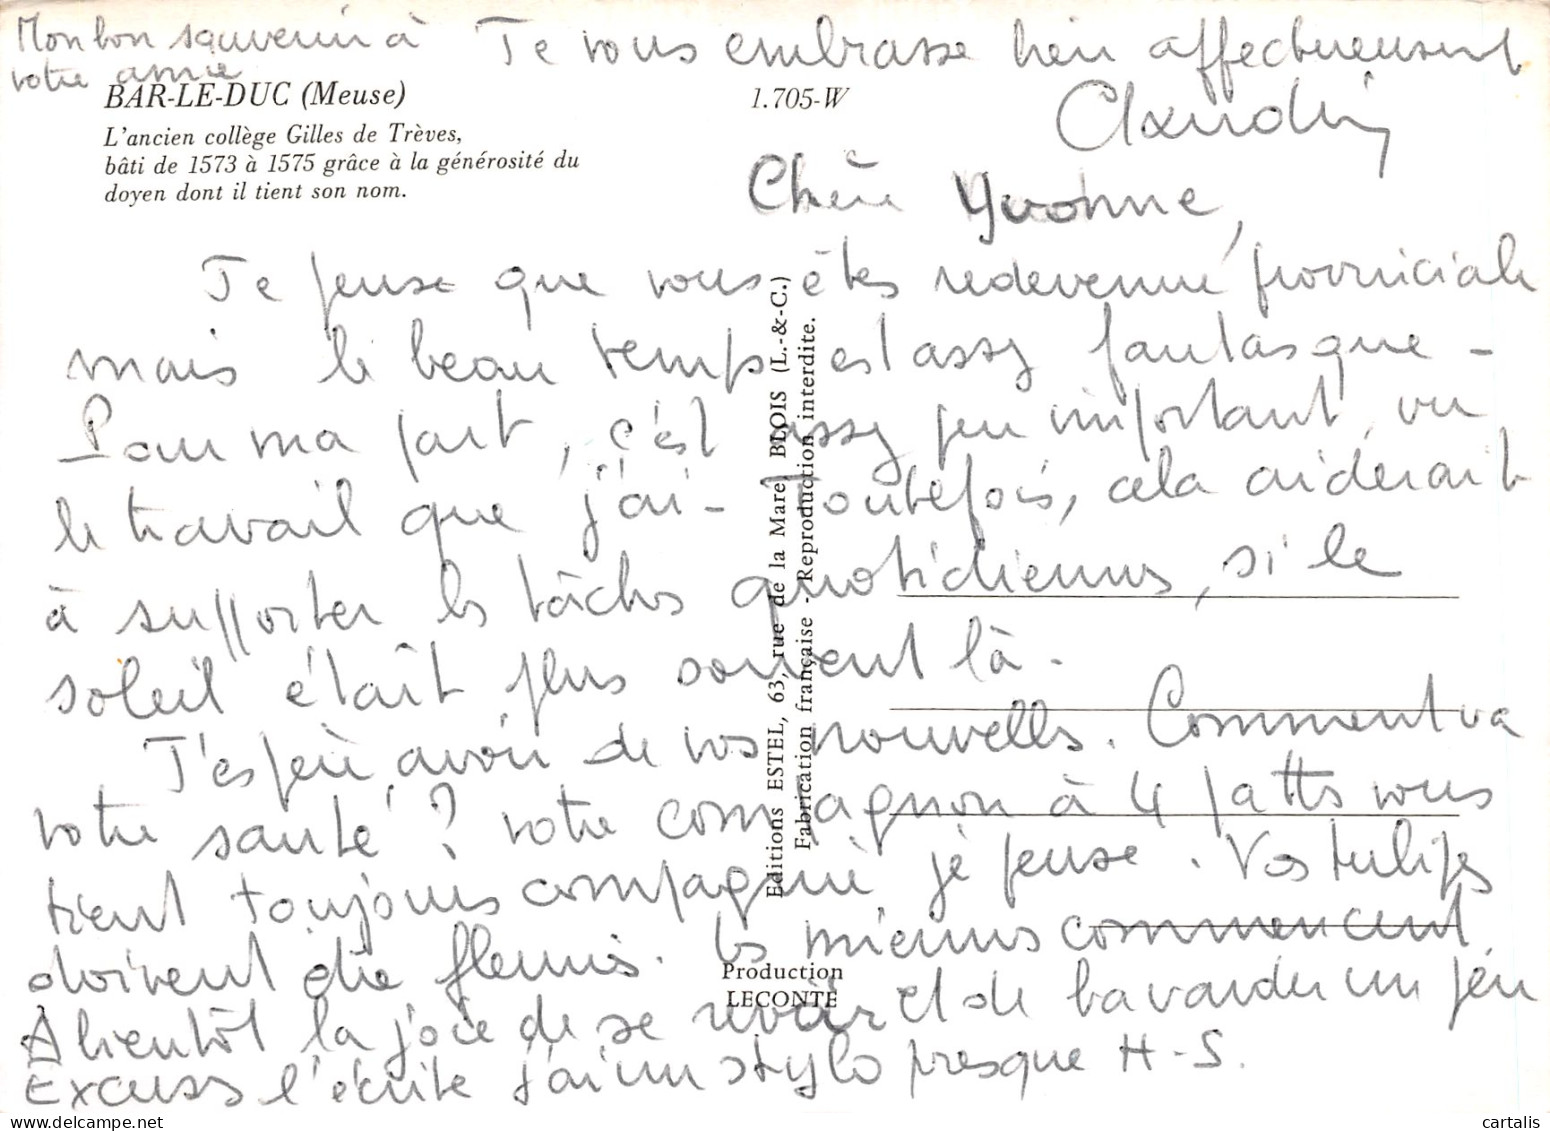 Mon bon souvenir à
votre amie
Je vous embrasse bien affectueusement
Claudie
BAR-LE-DUC (Meuse)
1.705-W
L'ancien collège Gilles de Trèves,
bâti de 1573 à 1575 grâce à la générosité du
doyen dont il tient son nom.
Chère Yvonne,
Je pense que vous êtes redevenue provinciale
mais le beau temps est assez fantasque -
Pour ma part, c'est assez peu important, vu
le travail que j'ai - Toutefois, cela aiderait
à supporter les tâches quotidiennes, si le
soleil était plus souvent là.
J'espère avoir de vos nouvelles. Comment va
votre santé ? votre compagnon à 4 pattes vous
tient toujours compagnie je pense. Vos tulipes
doivent être fleuries. Les miennes commencent.
A bientôt la joie de se revoir et de bavarder un peu
Excuses l'écrite j'ai un stylo presque H-S.
Editions ESTEL, 63, rue de la Mare, BLOIS (L.-&-C.)
Fabrication française - Reproduction interdite.
Production
LECONTE
cartalis